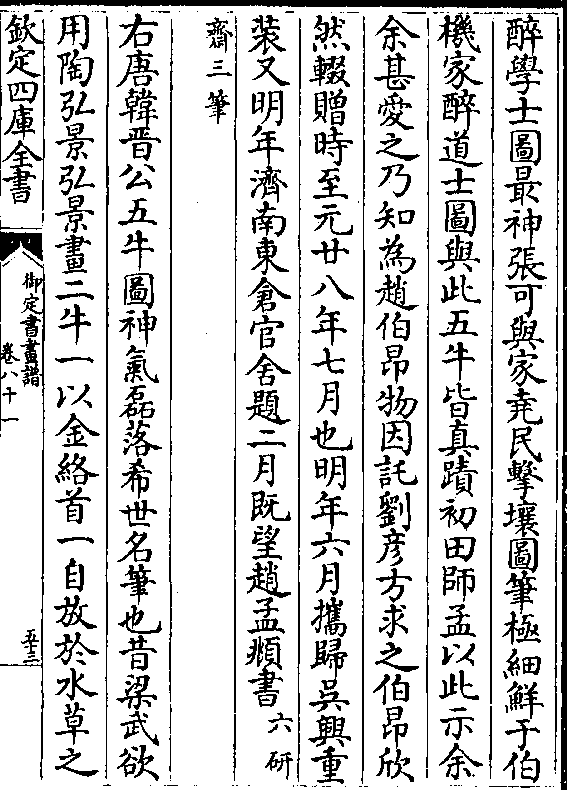 醉學士圖最神張可與家堯民擊壤圖筆極細鮮于伯
機家醉道士圖與此五牛皆真蹟初田師孟以此示余
余甚愛之乃知為趙伯昂物因託劉彦方求之伯昂欣
然輟贈時至元廿八年七月也明年六月攜歸吳興重
装又明年濟南東倉官舍題二月既望趙孟頫書 六研
齋三筆
右唐韓晋公五牛圖神氣磊落希世名筆也昔梁武欲
用陶弘景弘景畫二牛一以金絡首一自放於水草之
欽定四庫全書
御定書畫譜
卷八十一
五十三